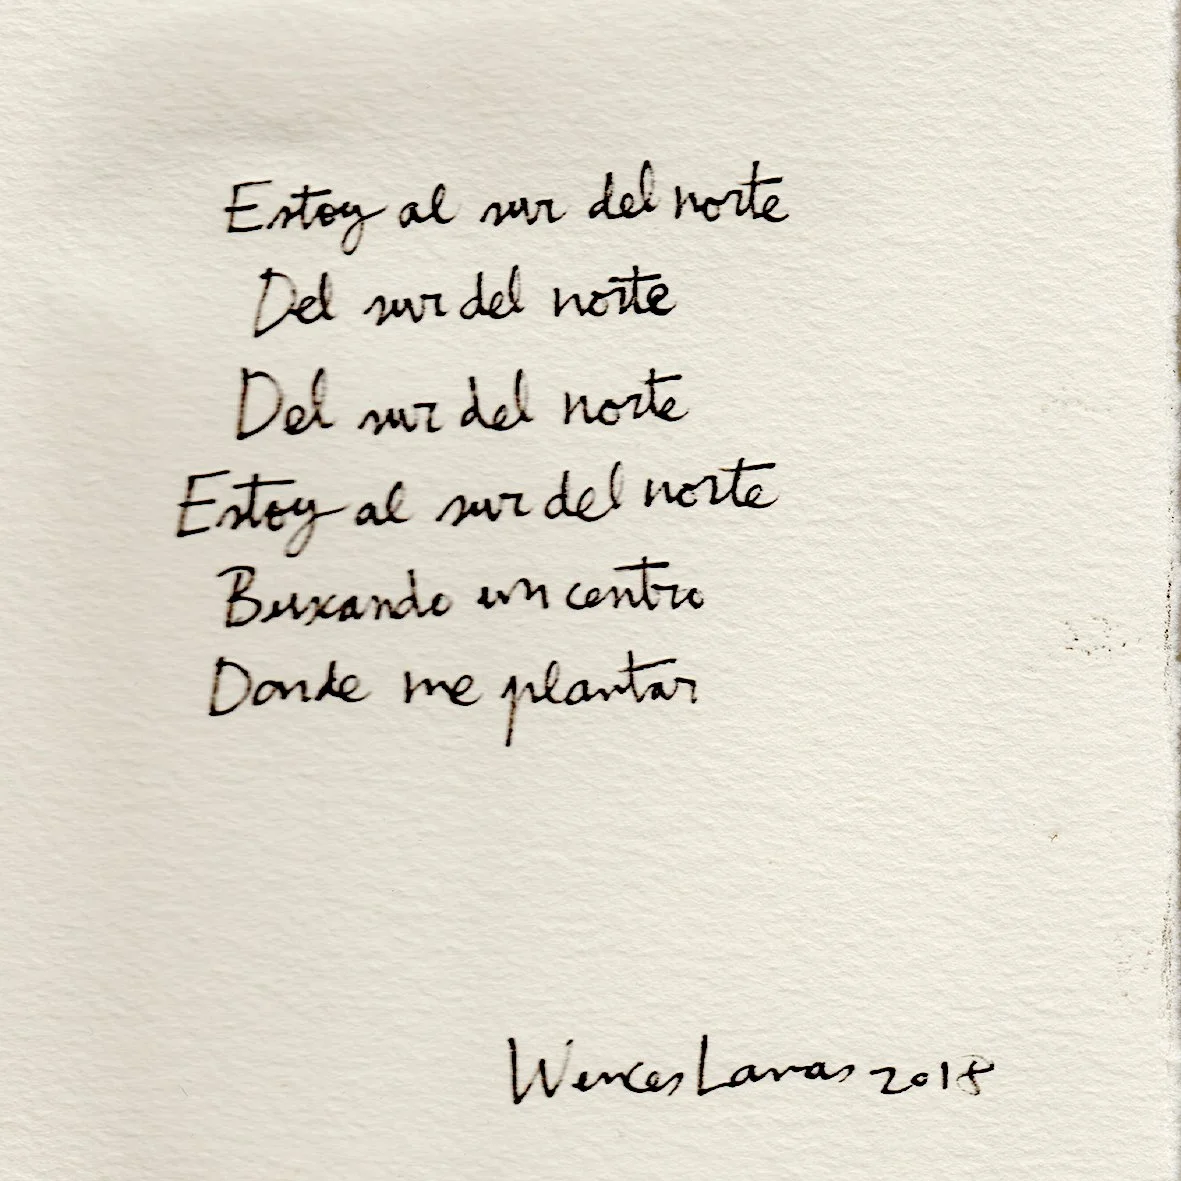 Estoy al sur del norte
Del sur del norte
Del sur del norte
Estoy al sur del norte
Buscando un centro
Donde me plantar
Wences Lamas 2018